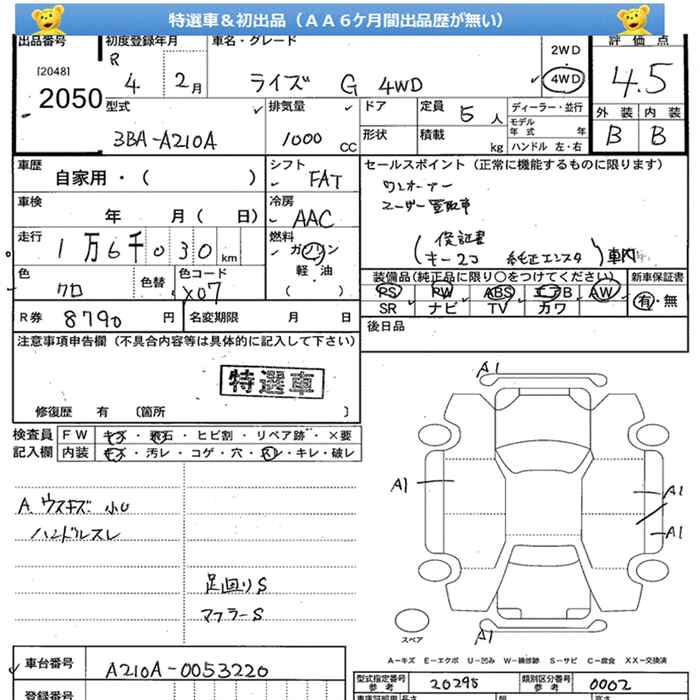 特選車＆初出品（ＡＡ６ケ月間出品歴が無い）
出品番号 初度登録年月 車名・グレード 2WD 評価点
R 4年 2月 ライズ G 4WD 4WD 4.5
[2048]
2050
型式 排気量 ドア 定員 5人 ディーラー・並行 外装 内装
3BA-A210A 1000 CC 形状 積載 kg モデル年式 年 B B
ハンドル 左・右
車歴 シフト セールスポイント（正常に機能するものに限ります）
自家用・（ ） FAT ワンオーナー
車検 冷房 ユーザー買取車
年 月（ 日） AAC
走行 燃料 保証書
1万6千030km ガソリン （キー2コ 純正エンスタ）車内
軽・油
（ ）
色 色替 色コード 装備品（純正品に限り○をつけてください） 新車保証書
クロ X07 PS PW ABS エアB AW 有・無
SR ナビ TV カワ
R券 8790円 名変期限 月 日 後日品
注意事項申告欄（不具合内容等は具体的に記入して下さい）
特選車
修復歴 有 〔箇所 〕
検査員 FW キズ・飛石・ヒビ割・リペア跡・×要
記入欄 内装 キズ・汚レ・コゲ・穴・スレ・キレ・破レ
A ウスキズ 小U
ハンドルスレ
足回りS
マフラーS
A1
A1
A1
A1
A1
スペア
A－キズ E－エクボ U－凹み W－補修跡 S－サビ C－腐食 XX－交換済
車台番号 A210A-0053220
型式指定番号 参考 20298 類別区分番号 参考 0002
登録番号 長さ 幅 高さ